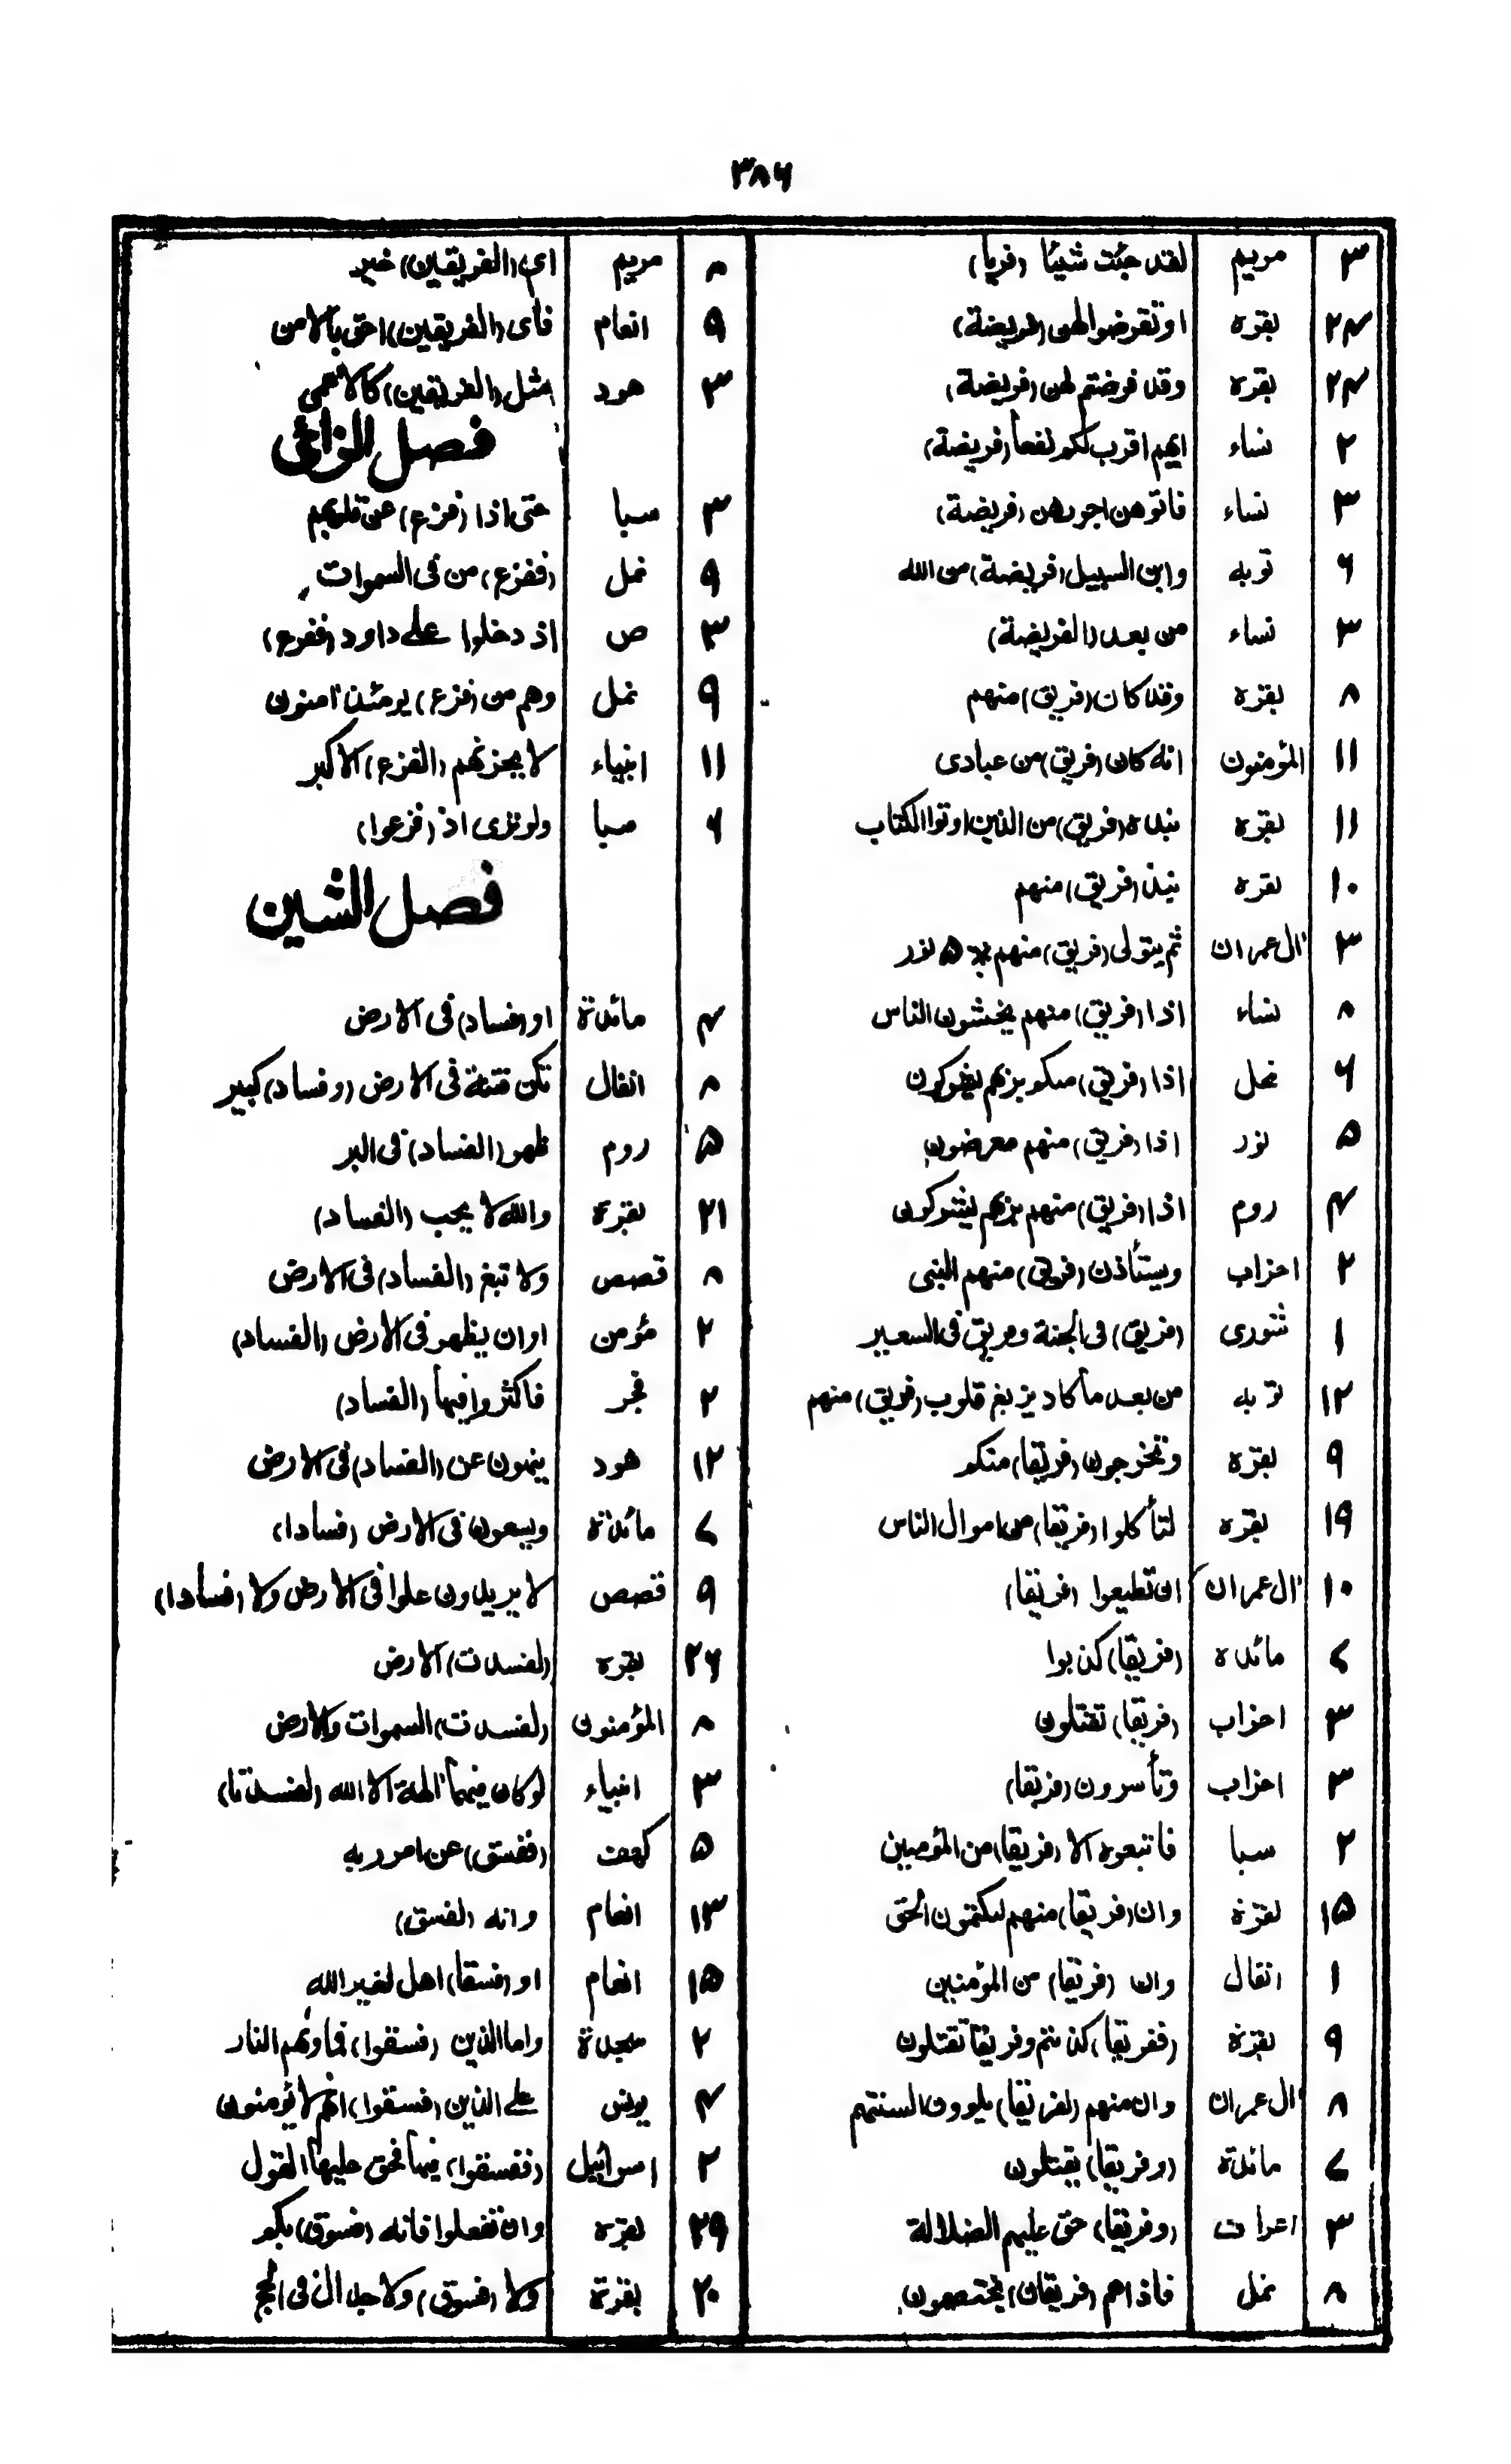 ۳۸۶
۳ مریم لقد جئت شیئا (فریا)
۲۴ بقره او تفرضوا لهن (فریضة)
۲۴ بقره وقد فرضتم لهن (فریضة)
۲ نساء ایهم اقرب لکم نفعا (فریضة)
۳ نساء فاتوهن اجورهن (فریضة)
۶ توبه وابن السبیل (فریضة) من الله
۳ نساء من بعد (الفریضة)
۸ بقره وقد کان (فریق) منهم
۱۱ المؤمنون انه کان (فریق) من عبادی
۱۱ بقره نبذه (فریق) من الذین اوتوا الکتاب
۱۰ بقره نبذ (فریق) منهم
۳ ال عمران ثم یتولی (فریق) منهم ۵ نور
۸ نساء اذا (فریق) منهم یخشون الناس
۶ نحل اذا (فریق) منکم بربهم یشرکون
۵ نور اذا (فریق) منهم معرضون
۴ روم اذا (فریق) منهم بربهم یشرکون
۲ احزاب ویستأذن (فریق) منهم النبی
۱ شوری (فریق) فی الجنة وفریق فی السعیر
۱۲ توبه من بعد ما کاد یزیغ قلوب (فریق) منهم
۹ بقره وتخرجون (فریقا) منکم
۱۹ بقره لتأکلوا (فریقا) من اموال الناس
۱۰ ال عمران ان تطیعوا (فریقا)
۷ مائده (فریقا) کذبوا
۳ احزاب (فریقا) تقتلون
۳ احزاب وتأسرون (فریقا)
۲ سبا فاتبعوه الا (فریقا) من المؤمنین
۱۵ بقرة وان (فریقا) منهم لیکتمون الحق
۱ انفال وان (فریقا) من المؤمنین
۹ بقرة (ففریقا) کذبتم وفریقا تقتلون
۸ ال عمران وان منهم (لفریقا) یلوون السنتهم
۷ مائدة (وفریقا) یقتلون
۳ اعراف (وفریقا) حق علیهم الضلالة
۸ نمل فاذا هم (فریقان) یختصمون
۸ مریم ای (الفریقین) خیر
۹ انعام فای (الفریقین) احق بالامن
۳ هود مثل (الفریقین) کالاعمی
فصل الزائی
۳ سبا حتی اذا (فزع) عن قلوبهم
۹ نمل (ففزع) من فی السموات
۳ ص اذ دخلوا علے داود (ففزع)
۹ نمل وهم من (فزع) یومئذ امنون
۱۱ انبیاء لا یحزنهم (الفزع) الاکبر
۶ سبا ولو تری اذ (فزعوا)
فصل الشین
۴ مائدة او (فساد) فی الارض
۸ انفال تکن فتنة فی الارض (وفساد) کبیر
۵ روم ظهر (الفساد) فی البر
۲۱ بقرة والله لا یحب (الفساد)
۸ قصص ولا تبغ (الفساد) فی الارض
۲ مؤمن او ان یظهر فی الارض (الفساد)
۲ فجر فاکثروا فیها (الفساد)
۱۲ هود ینهون عن (الفساد) فی الارض
۷ مائدة ویسعون فی الارض (فسادا)
۹ قصص لا یریدون علوا فی الارض ولا (فسادا)
۲۶ بقره (لفسدت) الارض
۸ المؤمنون (لفسدت) السموات والارض
۳ انبیاء لو کان فیهما الهة الا الله (لفسدتا)
۵ کهف (ففسق) عن امر ربه
۱۳ انعام وانه (لفسق)
۱۵ انعام او (فسقا) اهل لغیر الله
۲ سجدة واما الذین (فسقوا) فماوٰهم النار
۴ یونس علے الذین (فسقوا) انهم لا یؤمنون
۲ اسرائیل (ففسقوا) فیها فحق علیها القول
۲۹ بقره وان تفعلوا فانه (فسوق) بکم
۲۰ بقرة ولا (فسوق) ولا جدال فی الحج